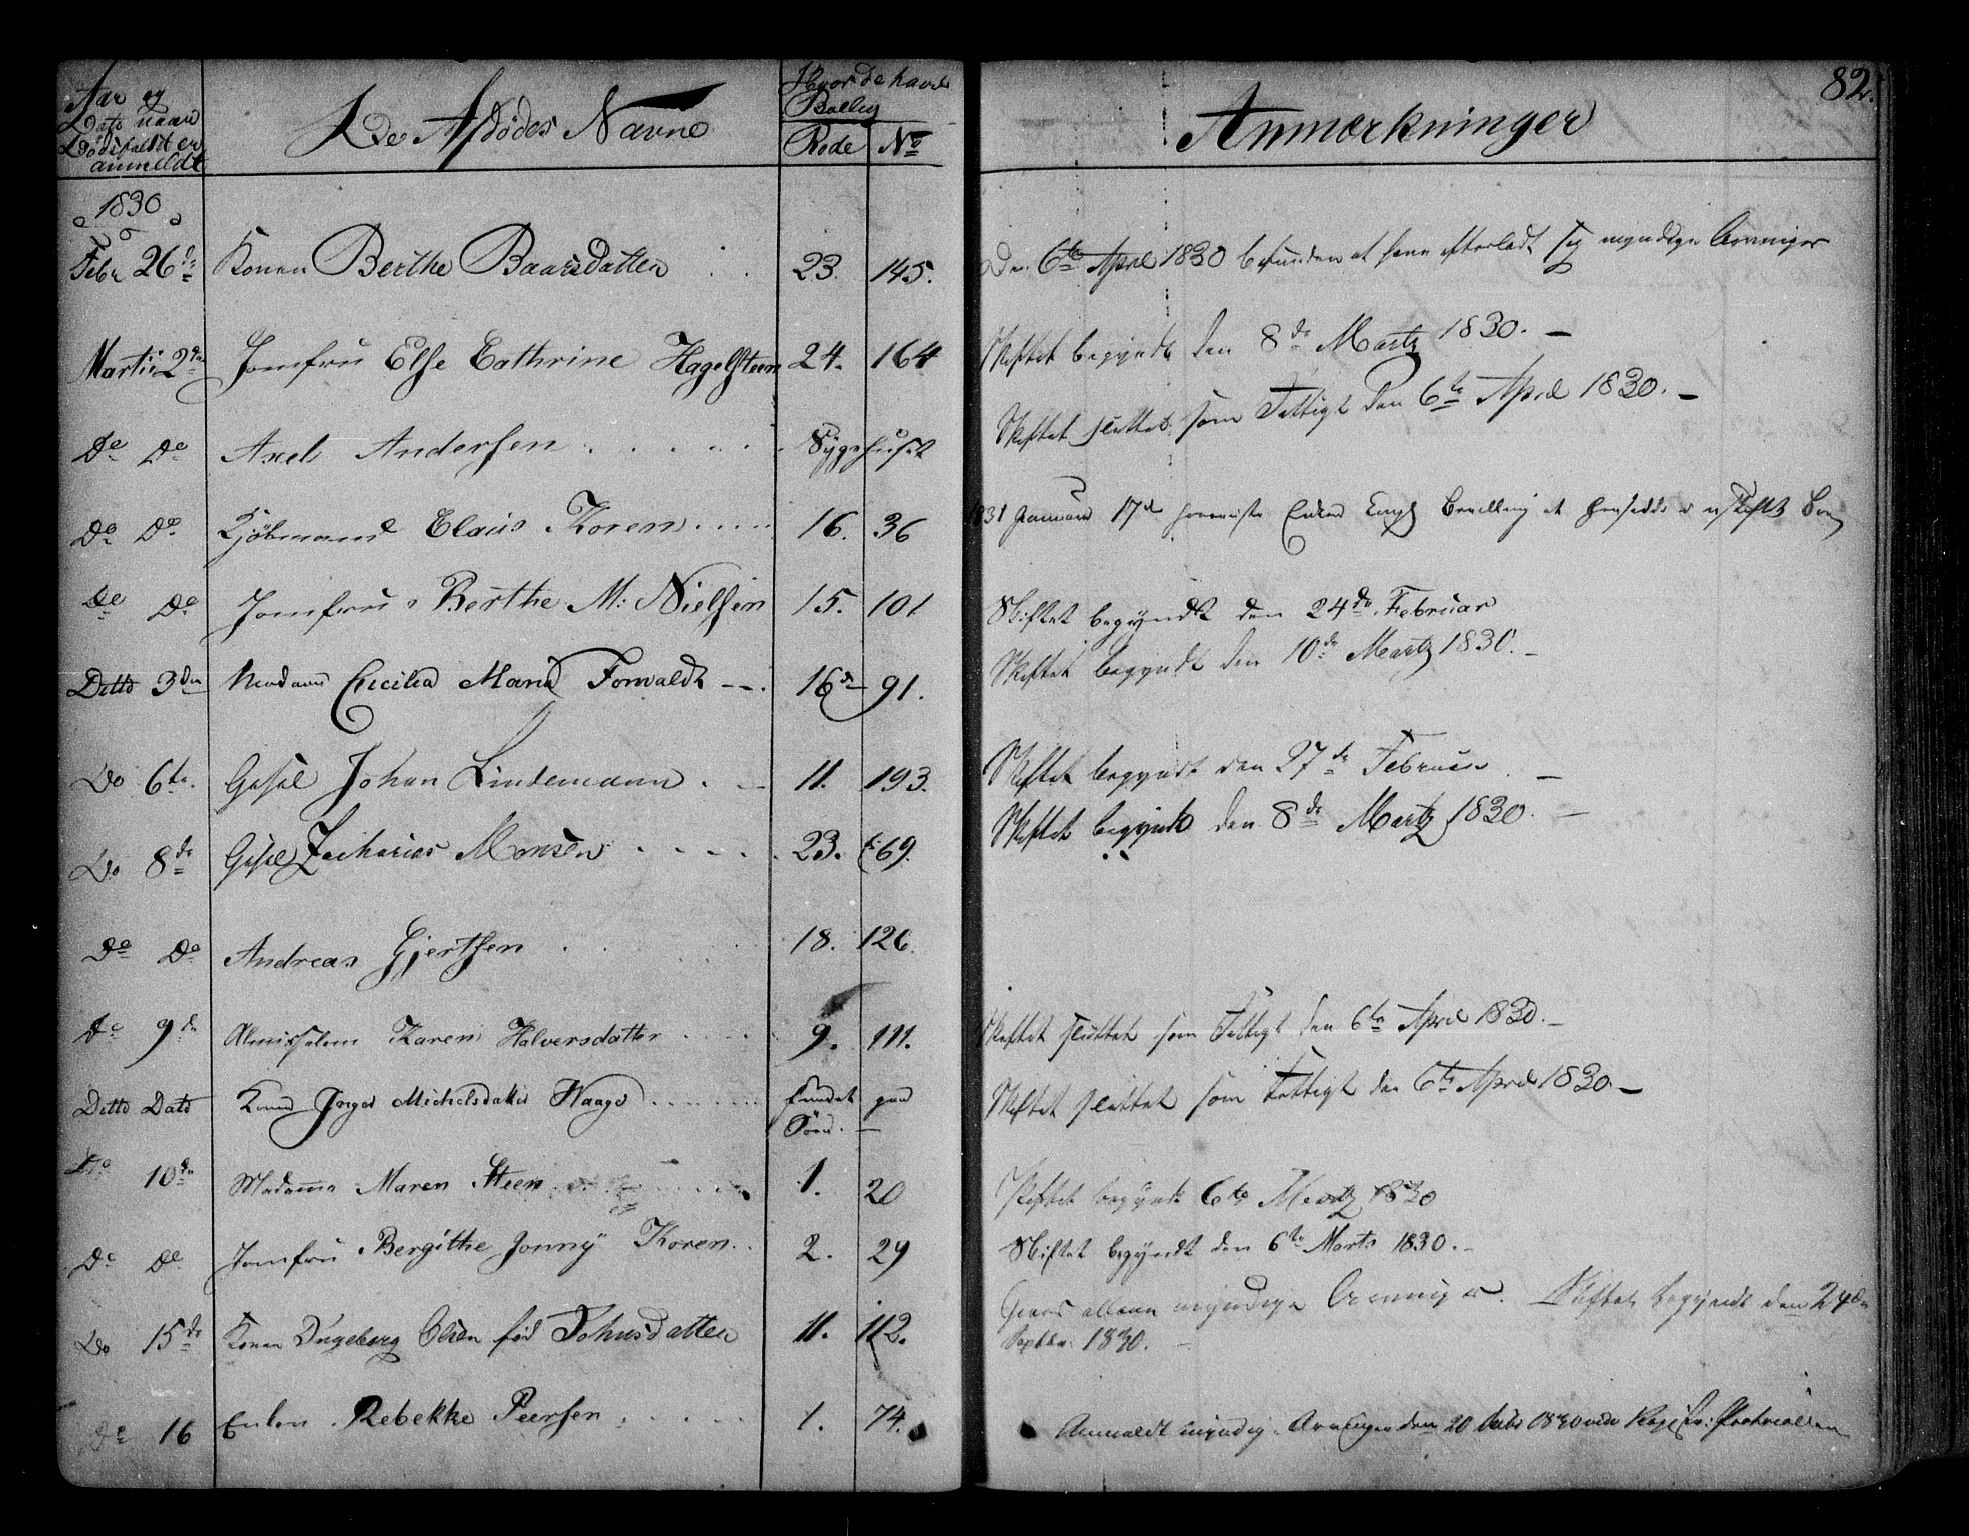 82.
Aar og
Dato naar
Dödsfaldet er
anmeldt
De Afdødes Navne
Hvor de havde
Bolig
Rode No
Anmærkninger
1830
Febr 26de Konen Berthe Baarsdatter 23. 145. Den 6te April 1830 befunden at have efterladt sig myndige Arvinger
Martii 2den Jomfru Else Cathrine Hagelsteen 24. 164 Skiftet begyndt den 8de Martz 1830. —
Do Do Axel Andersen Sygehuset Skiftet sluttet som Fattigt den 6te April 1830. —
Do Do Kjöbmand Claus Koren 16. 36 1831 Januar 17de Enken Bevilling at hensidde i uskiftet Boe
Do Do Jomfru Berthe M: Nielsen 15. 101 Skiftet begyndt den 24de Februar
Ditto 3den Madam Cicilia Maria Forwaldt 16de 91. Skiftet begyndt den 10de Martz 1830. —
Do 6te Gesel Johan Lindemann 11. 193. Skiftet begyndt den 27de Februar —
Do 8de Gesel Zacharias Monsen 23. 69. Skiftet begyndt den 8de Martz 1830. —
Do Do Andreas Gjertsen 18. 126.
Do 9de Almisselem Karen Halversdatter 9. 111. Skiftet sluttet som Fattigt den 6te April 1830. —
Ditto Dato Inger Michelsdatter Haage fundet paa Skiftet sluttet som Fattigt den 6te April 1830. —
Söen. —
Do 10de Madamme Maren Steen 1. 20 Skiftet begyndt 6te Martz 1830
Do Do Jomfru Bergithe Jonny Koren 2. 29 Skiftet begyndt den 6te Marts 1830. —
Do 15de Konen Ingeborg Olsen föd Johnsdatter 11. 112. myndige Arvinger. Skiftet begyndt den 24de
Septbr. 1830. —
Do 16 Enken Rebekke Peersen 1. 74. Anmeldt myndig Arvinger den 20 1830